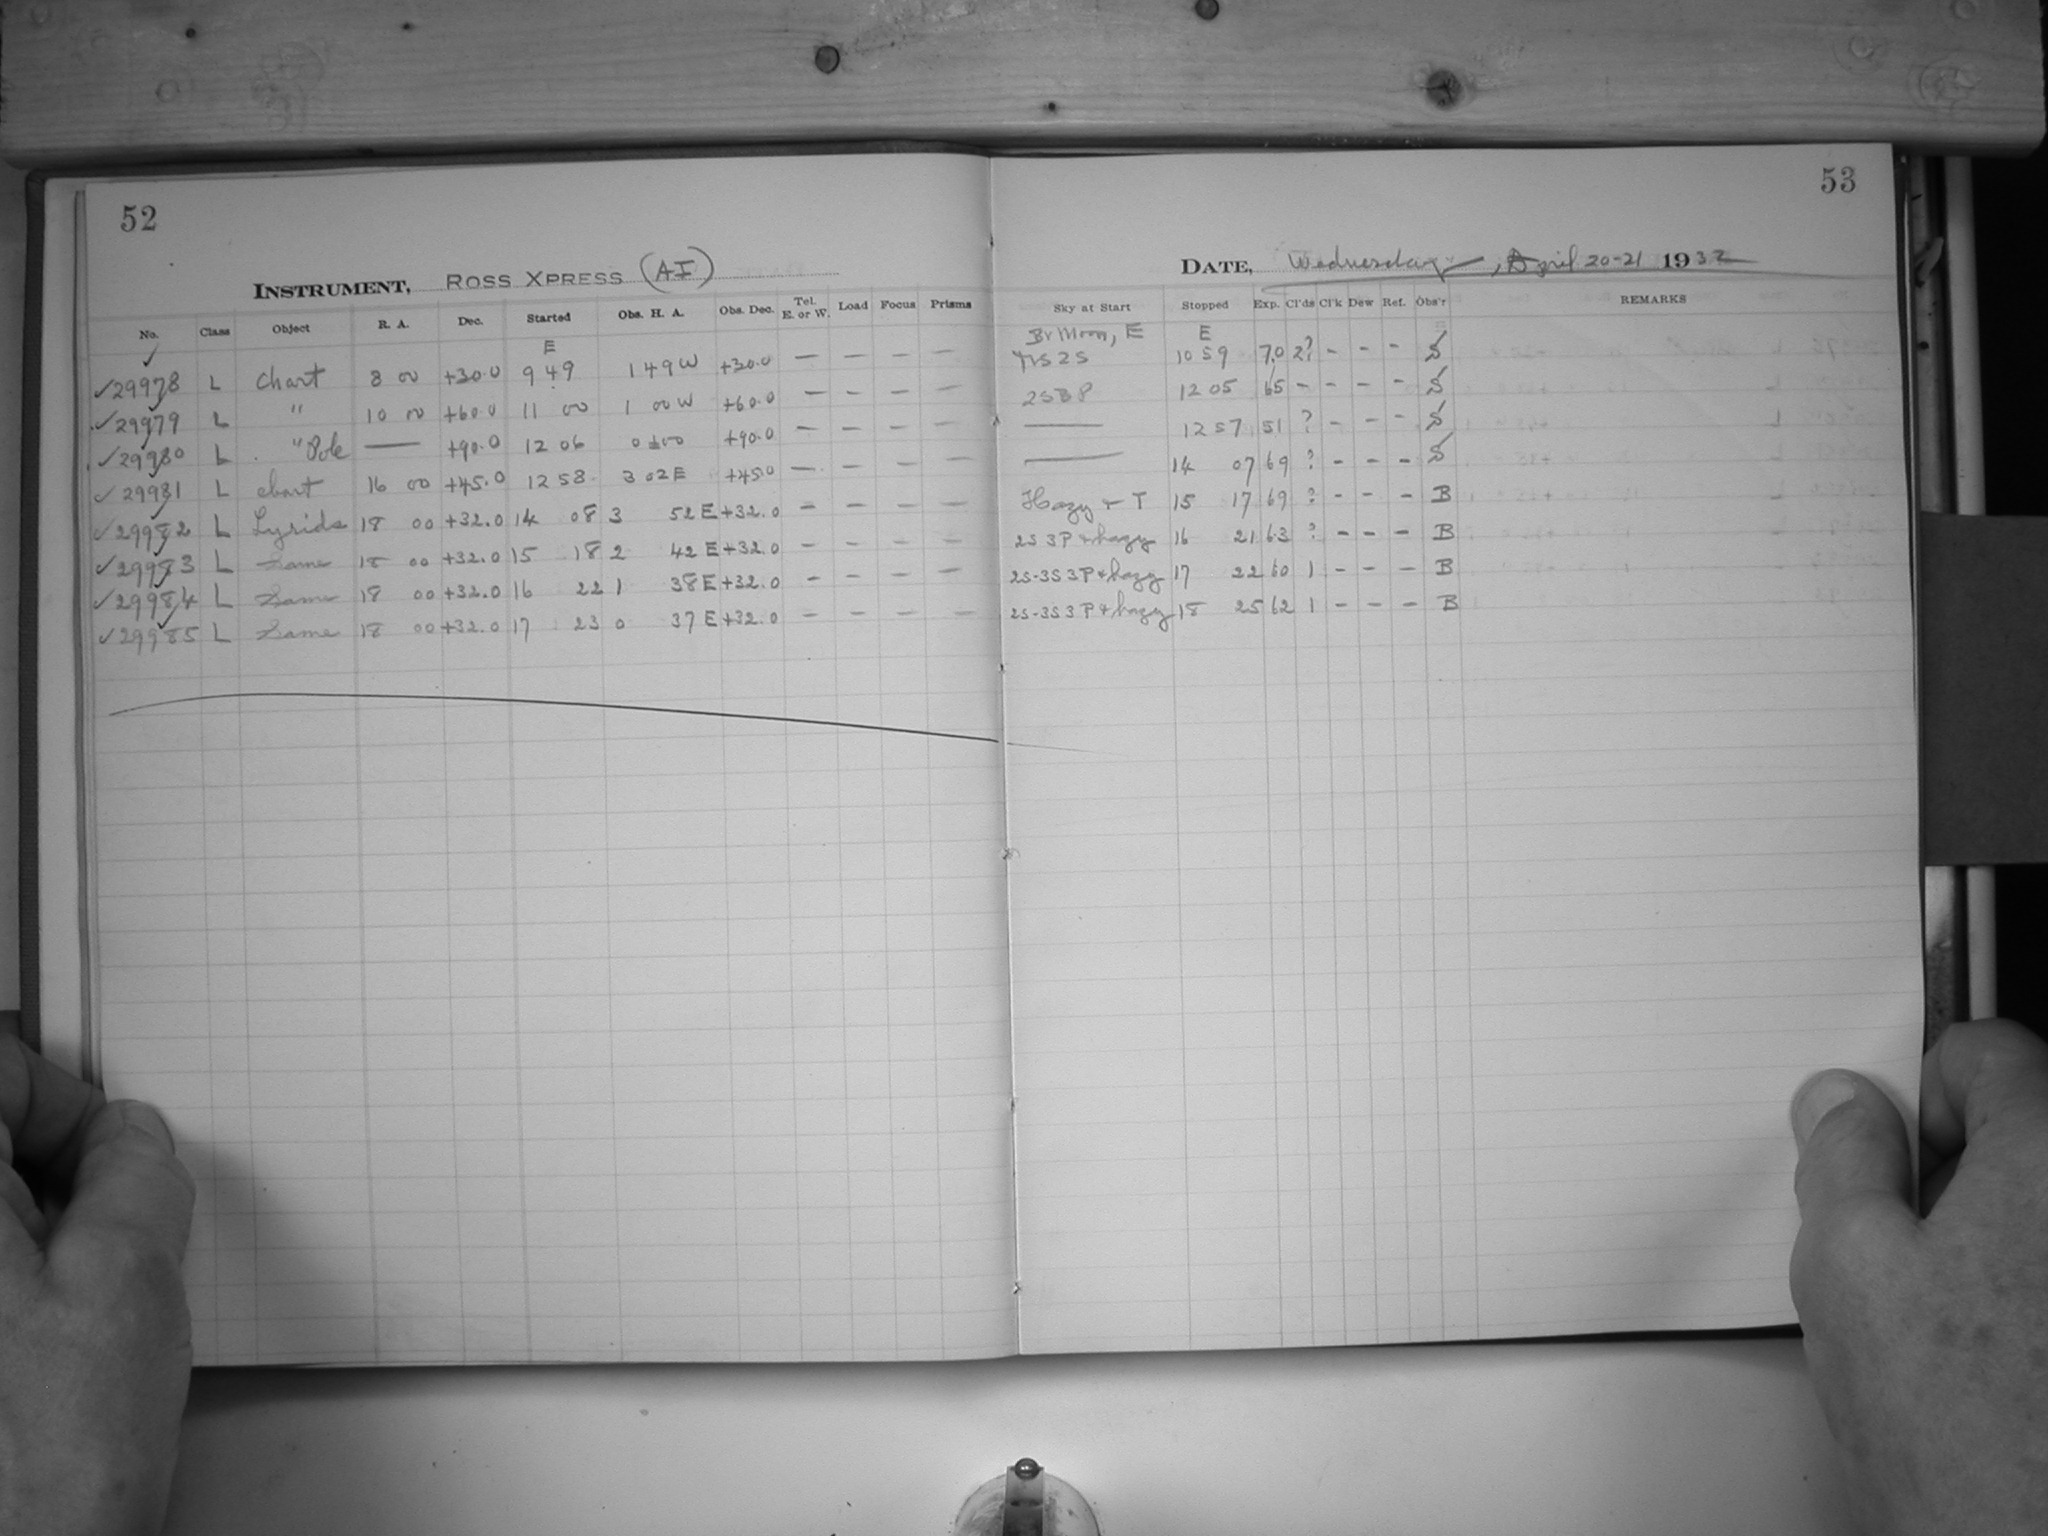 52
INSTRUMENT, ROSS XPRESS (AI)
No. Class Object R. A. Dec. Started Obs. H. A. Obs. Dec. Tel. E. or W. Load Focus Prisms
E
✓29978 L Chart 8 00 +30.0 9 49 1 49 W +30.0 — — — —
✓29979 L " 10 00 +60.0 11 00 1 00 W +60.0 — — — —
✓29980 L " Pole — +90.0 12 06 0 ±00 +90.0 — — — —
✓29981 L chart 16 00 +45.0 12 58 3 02 E +45.0 — — — —
✓29982 L Lyrids 18 00 +32.0 14 08 3 52 E +32.0 — — — —
✓29983 L Same 18 00 +32.0 15 18 2 42 E +32.0 — — — —
✓29984 L Same 18 00 +32.0 16 22 1 38 E +32.0 — — — —
✓29985 L Same 18 00 +32.0 17 23 0 37 E +32.0 — — — —
53
DATE, Wednesday, April 20-21 1932
Sky at Start Stopped Exp. Cl'ds Cl'k Dew Ref. Obs'r REMARKS
Br Moon, E E
2S 10 59 70 2? - - - S
2S3P 12 05 65 - - - - S
— 12 57 51 ? - - - S
— 14 07 69 ? - - - S
Hazy + T 15 17 69 ? - - - B
2S 3P + hazy 16 21 63 ? - - - B
2S-3S 3P + hazy 17 22 60 1 - - - B
2S-3S 3P + hazy 18 25 62 1 - - - B